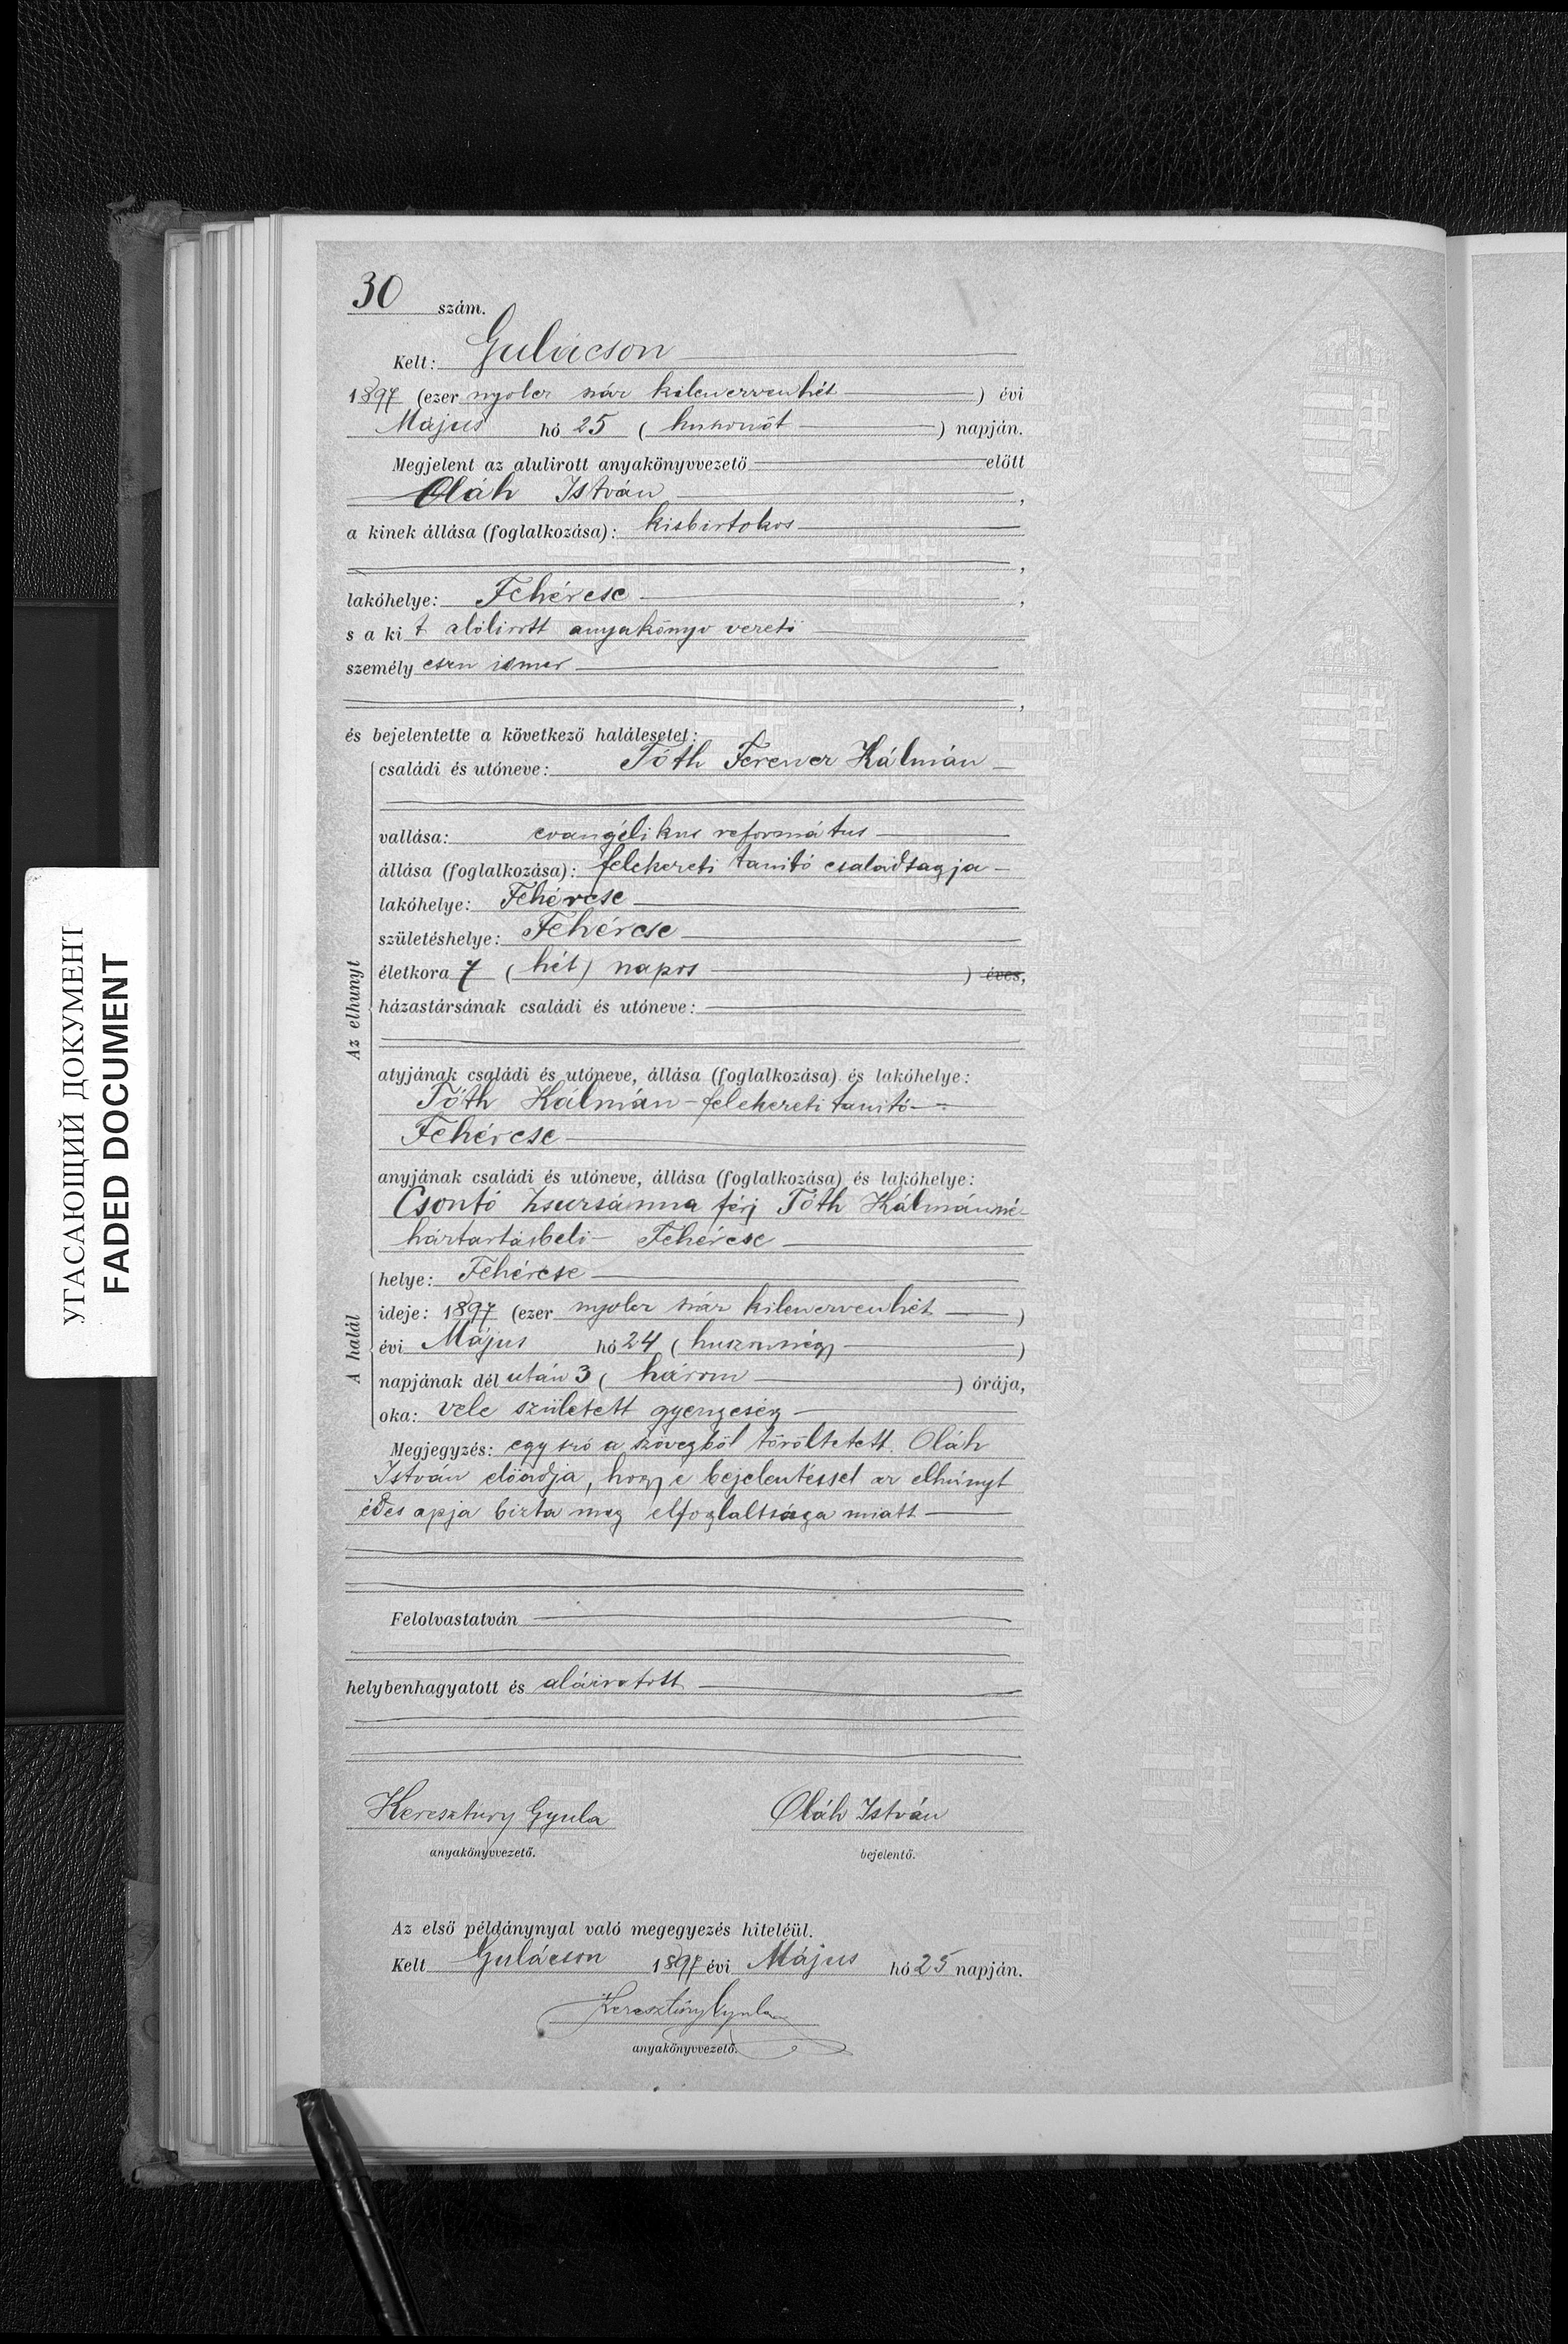 30 szám.
Kelt: Gulácson
1897 (ezer nyolcz száz kilenczvenhét) évi
Május hó 25 (huszonöt) napján.
Megjelent az alulirott anyakönyvvezető előtt
Oláh István,
a kinek állása (foglalkozása): kisbirtokos
,
lakóhelye: Fehércse,
s a kit alólirott anyakönyv vezető
személyesen ismer
,
és bejelentette a következő halálesetet:
Az elhunyt
családi és utóneve: Tóth Ferencz Kálmán
vallása: evangélikus református
állása (foglalkozása): felekezeti tanító családtagja
lakóhelye: Fehércse
születéshelye: Fehércse
életkora 7 (hét) napos ) éves,
házastársának családi és utóneve:
atyjának családi és utóneve, állása (foglalkozása) és lakóhelye:
Tóth Kálmán – felekezeti tanító –
Fehércse
anyjának családi és utóneve, állása (foglalkozása) és lakóhelye:
Csontó Zsuzsánna férj Tóth Kálmánné
háztartásbeli – Fehércse
A halál
helye: Fehércse
ideje: 1897 (ezer nyolcz száz kilenczvenhét)
évi Május hó 24 (huszonnégy)
napjának dél után 3 (három) órája,
oka: vele született gyengeség
Megjegyzés: egy szó a szövegből töröltetett. Oláh
István előadja, hogy e bejelentéssel az elhúnyt
édes apja bizta meg elfoglaltsága miatt
Felolvastatván
helybenhagyatott és aláiratott
Keresztúry Gyula Oláh István
anyakönyvvezető. bejelentő.
Az első példánynyal való megegyezés hiteléül.
Kelt Gulácson 1897 évi Május hó 25 napján.
Keresztúry Gyula
anyakönyvvezető.
УГАСАЮЩИЙ ДОКУМЕНТ
FADED DOCUMENT